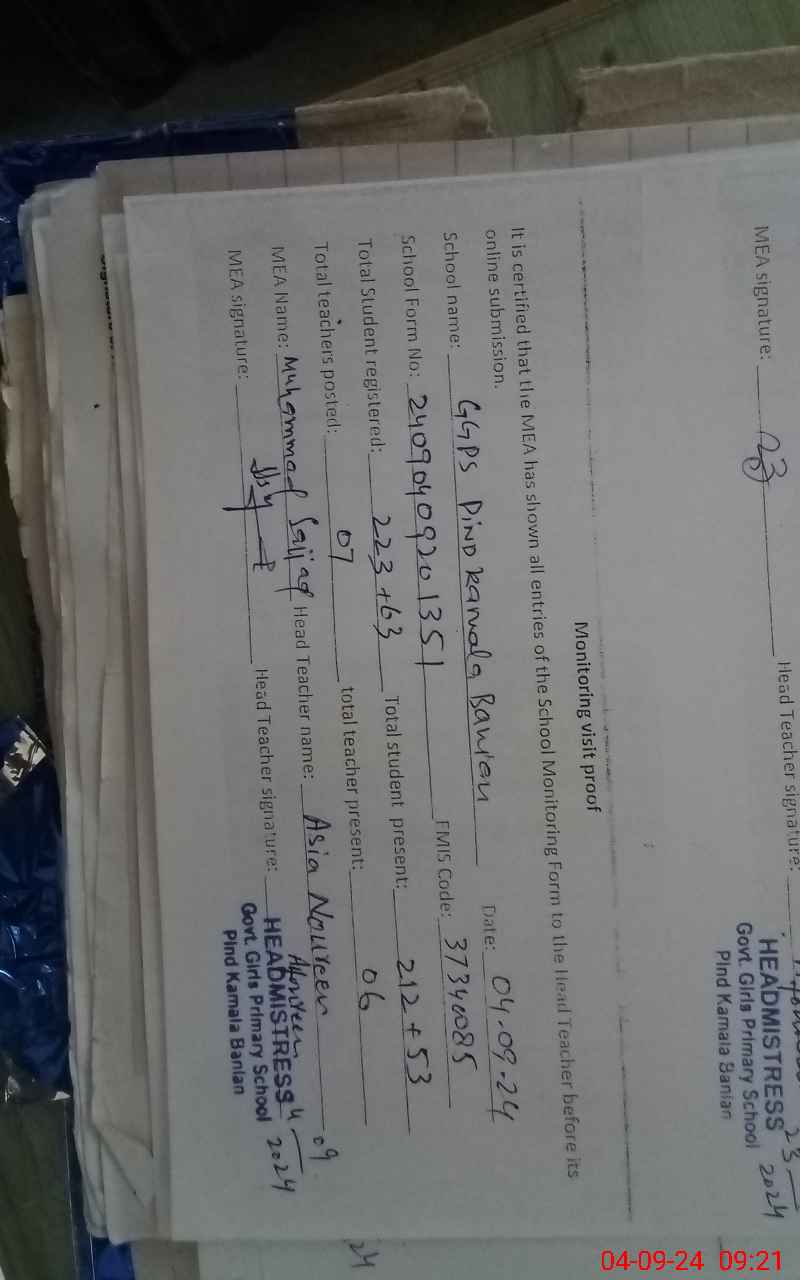 MEA signature: Head Teacher signature:
HEADMISTRESS
Govt. Girls Primary School 2024
Pind Kamala Banian
Monitoring visit proof
It is certified that the MEA has shown all entries of the School Monitoring Form to the Head Teacher before its
online submission. Date: 04-09-24
School name: GGPS Pind Kamala Banian EMIS Code: 37340085
School Form No: 24090409201351
Total Student registered: 223+63 Total student present: 212+53
Total teachers posted: 07 total teacher present: 06
MEA Name: Muhammad Sajjad Head Teacher name: Asia Noureen
MEA signature: Head Teacher signature:
HEADMISTRESS
Govt. Girls Primary School 2024
Pind Kamala Banian
04-09-24 09:21